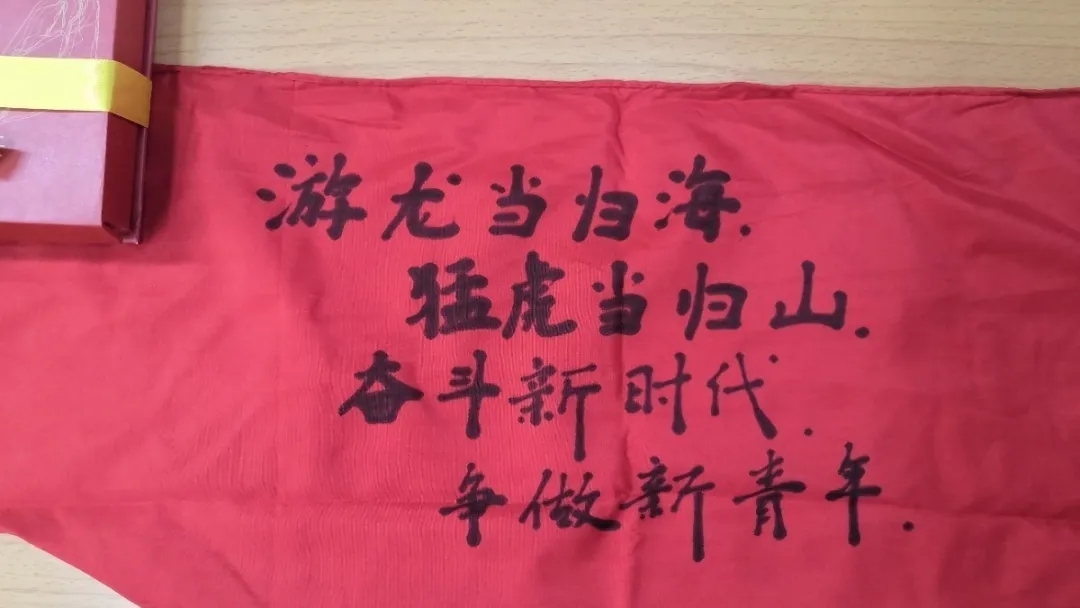 游龙当归海.
猛虎当归山.
奋斗新时代.
争做新青年.